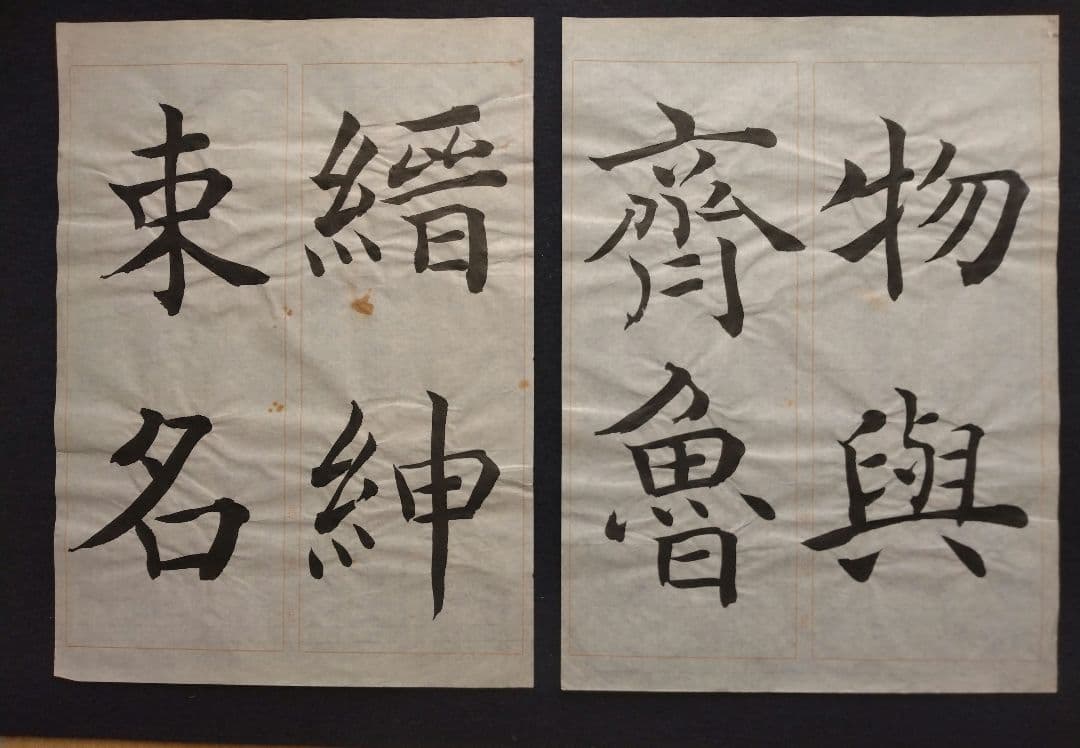 物與
齊魯
縉紳
束名